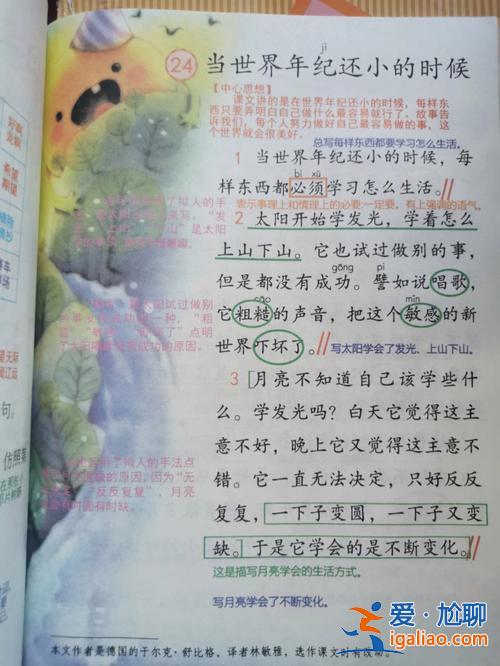 jì
24 当世界年纪还小的时候
【中心思想】
课文讲的是在世界年纪还小的时候，每样东
西只要弄明白自己做什么最容易就行了，故事告
诉我们，每个人努力做好自己最容易做的事，这
个世界就会很美好。
总写每样东西都要学习怎么生活。
1 当世界年纪还小的时候，每
bì xū
样东西都必须学习怎么生活。
表示事理上和情理上的必要一定要。有上强调的语气。
2 太阳开始学发光，学着怎么
上山下山。它也试过做别的事，
gōng pì
但是都没有成功。譬如说唱歌，
cāo mǐn
它粗糙的声音，把这个敏感的新
世界吓坏了。
写太阳学会了发光、上山下山。
3 月亮不知道自己该学些什
么。学发光吗？白天它觉得这主
意不好，晚上它又觉得这主意不
错。它一直无法决定，只好反反
复复，一下子变圆，一下子又变
缺。于是它学会的是不断变化。
这是描写月亮学会的生活方式。
写月亮学会了不断变化。
本文作者是德国的于尔克·舒比格，译者林敏雅，选作课文时有改动。
了拟人的手法
来写，“发
是太阳
太阳试过做别
一种，“粗
点明
成功的原因。
用了拟人的手法点
缺的原因，因为“无
“反反复复”，月亮
时圆有时缺。
希望
期望
句。
仿照第
爱·尬聊
igaliao.com